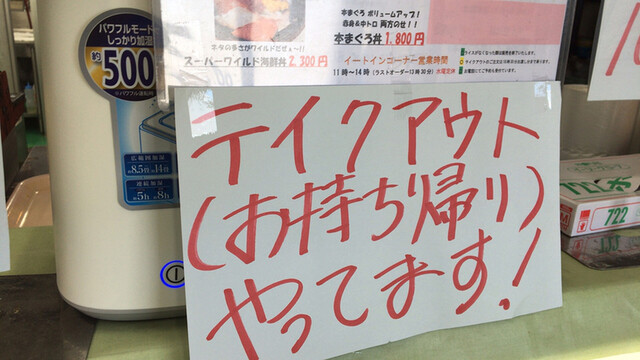 パワフルモード
しっかり加湿
約
500
※パワフル運転時
広範囲加湿
約8.5畳~14畳
連続加湿
約5h~約8h
本まぐろ ボリュームアップ!
赤身&中トロ 両方のせ!!
本まぐろ丼 1,800円
ネタの多さがワイルドだぜぇ~!!
スーパーワイルド海鮮丼 2,300円
イートインコーナー営業時間
11時~14時(ラストオーダー13時30分)水曜定休
テイクアウト
(お持ち帰り)
やってます!
722